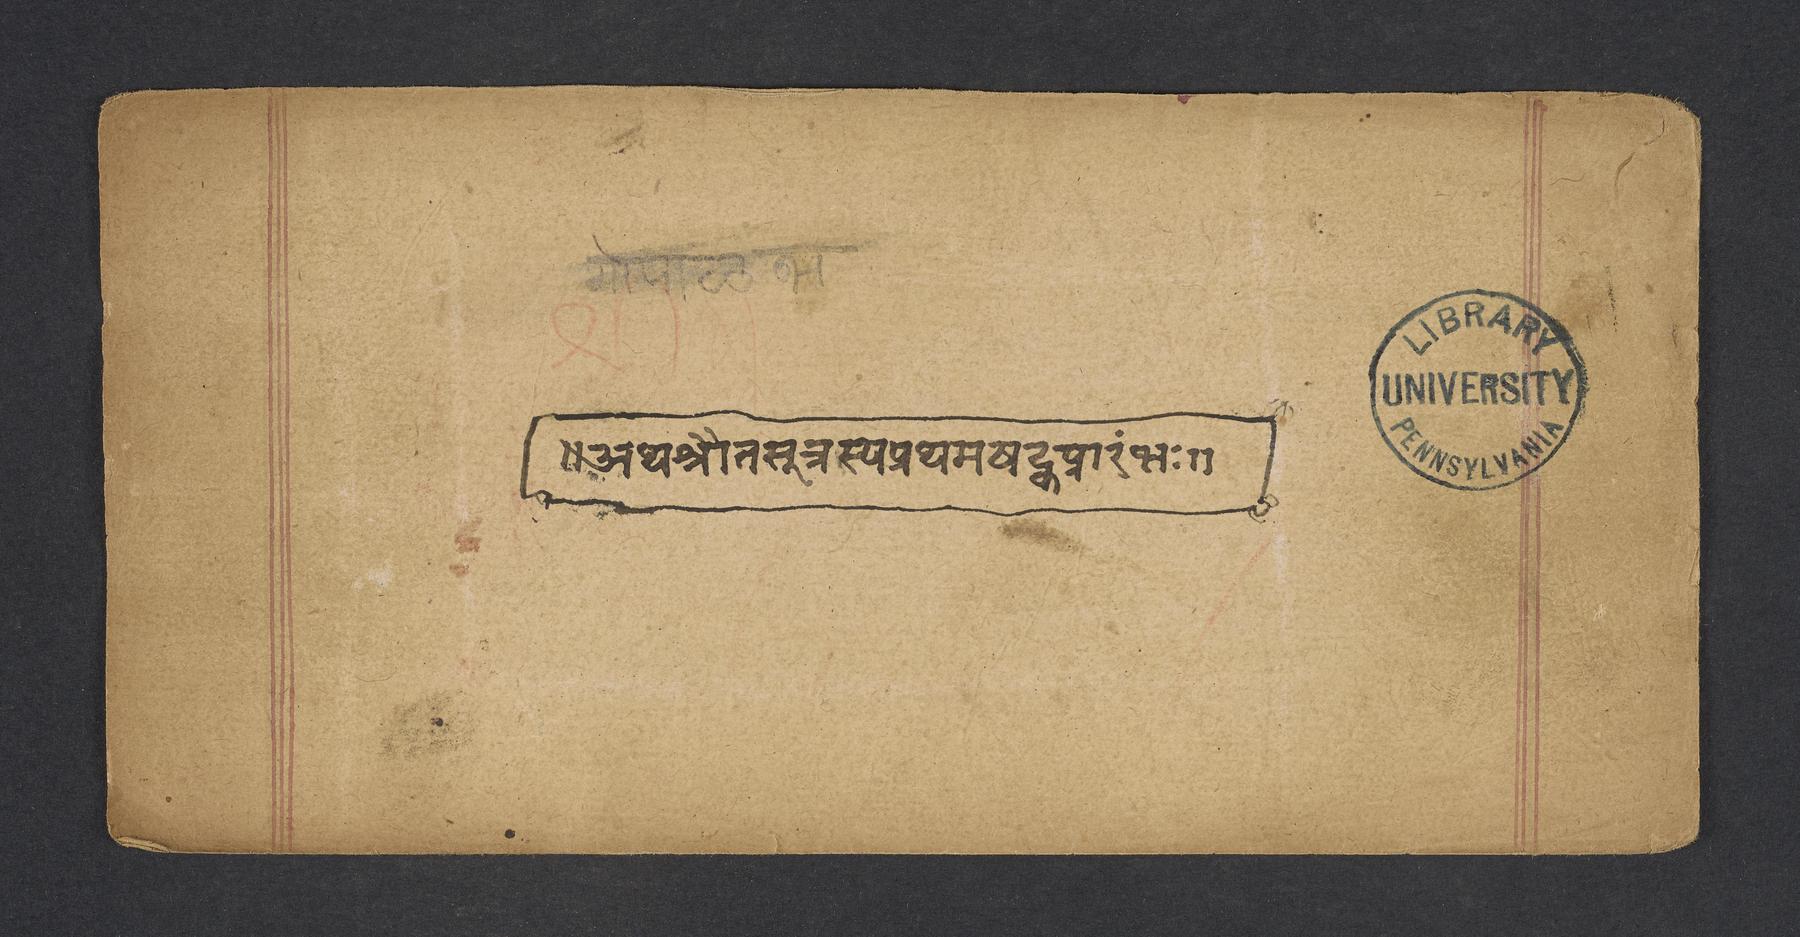 ॥अथश्रौतसूत्रस्यप्रथमषट्कप्रारंभः॥
LIBRARY
UNIVERSITY
PENNSYLVANIA